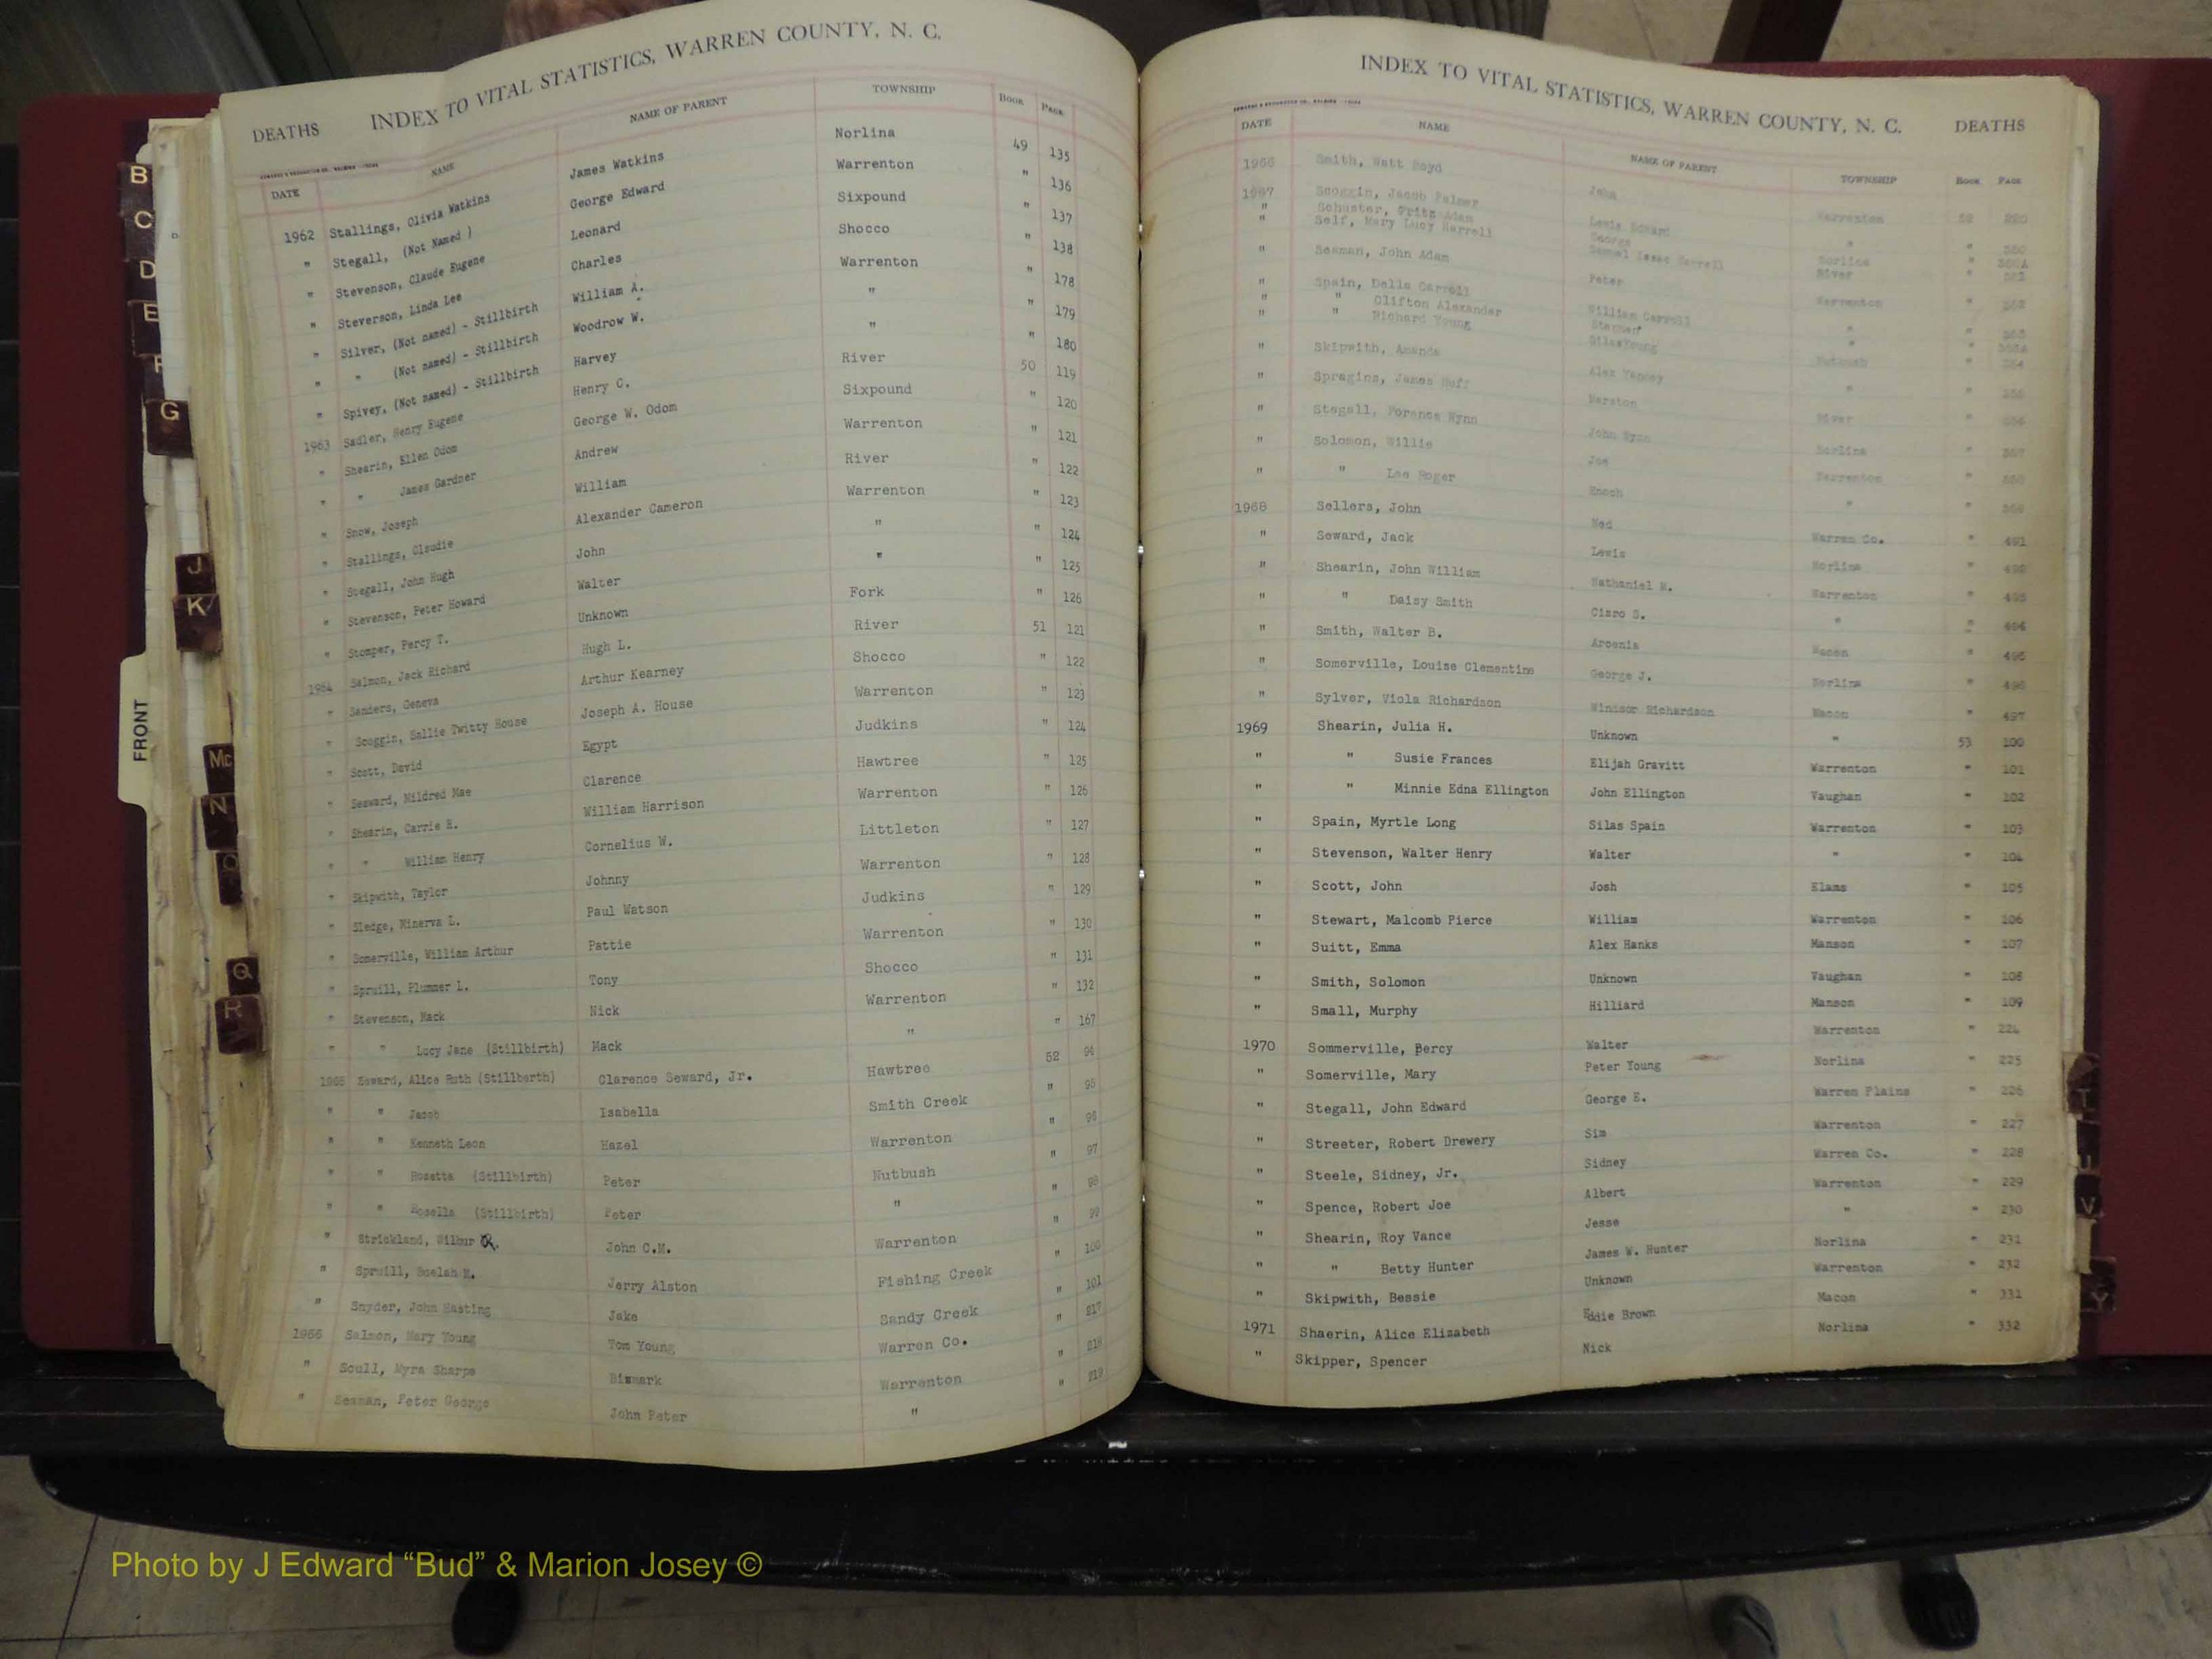 INDEX TO VITAL STATISTICS, WARREN COUNTY, N. C.
DEATHS
DATE NAME NAME OF PARENT TOWNSHIP Book Page
1962 Stallings, Olivia Watkins James Watkins Norlina 49 135
" Stegall, (Not Named ) George Edward Warrenton " 136
" Stevenson, Claude Eugene Leonard Sixpound " 137
" Steverson, Linda Lee Charles Shocco " 138
" Silver, (Not named) - Stillbirth William A. Warrenton " 178
" " (Not named) - Stillbirth Woodrow W. " " 179
" Spivey, (Not named) - Stillbirth Harvey " " 180
1963 Sadler, Henry Eugene Henry C. River 50 119
" Shearin, Ellen Odom George W. Odom Sixpound " 120
" " James Gardner Andrew Warrenton " 121
" Snow, Joseph William River " 122
" Stallings, Claudie Alexander Cameron Warrenton " 123
" Stegall, John Hugh John " " 124
" Stevenson, Peter Howard Walter " " 125
" Stomper, Percy T. Unknown Fork " 126
1964 Salmon, Jack Richard Hugh L. River 51 121
" Sanders, Geneva Arthur Kearney Shocco " 122
" Scoggin, Sallie Twitty House Joseph A. House Warrenton " 123
" Scott, David Egypt Judkins " 124
" Seaward, Mildred Mae Clarence Hawtree " 125
" Shearin, Carrie H. William Harrison Warrenton " 126
" " William Henry Cornelius W. Littleton " 127
" Skipwith, Taylor Johnny Warrenton " 128
" Sledge, Minerva L. Paul Watson Judkins " 129
" Somerville, William Arthur Pattie Warrenton " 130
" Spruill, Plummer L. Tony Shocco " 131
" Stevenson, Mack Nick Warrenton " 132
" " Lucy Jane (Stillbirth) Mack " " 167
1965 Seward, Alice Ruth (Stillberth) Clarence Seward, Jr. Hawtree 52 94
" " Jacob Isabella Smith Creek " 95
" " Kenneth Leon Hazel Warrenton " 96
" " Rosetta (Stillbirth) Peter Nutbush " 97
" " Rosella (Stillbirth) Peter " " 98
" Strickland, Wilbur R. John C.M. Warrenton " 99
" Spruill, Buelah M. Jerry Alston Fishing Creek " 100
" Snyder, John Hasting Jake Sandy Creek " 101
1966 Salmon, Mary Young Tom Young Warren Co. " 217
" Scull, Myra Sharpe Bismark Warrenton " 218
" Seaman, Peter George John Peter " " 219
INDEX TO VITAL STATISTICS, WARREN COUNTY, N. C.
DEATHS
DATE NAME NAME OF PARENT TOWNSHIP Book Page
1966 Smith, Watt Boyd John Warrenton 52 220
1967 Scoggin, Jacob Palmer Lewis Edward " "
" Schuster, Fritz Adam George Norlina "
" Self, Mary Lucy Harrell Samuel Isaac Harrell River "
" Seaman, John Adam Peter Warrenton "
" Spain, Della Carroll William Carroll " "
" " Clifton Alexander Stephen " "
" " Richard Young Silas Young Nutbush "
" Skipwith, Amanda Alex Yancey " "
" Spragins, James Huff Marston River "
" Stegall, Forence Wynn John Wynn Norlina "
" Solomon, Willie Joe Warrenton "
" " Lee Roger Enoch " "
1968 Sellers, John Ned Warren Co. " 491
" Seward, Jack Lewis Norlina " 492
" Shearin, John William Nathaniel M. Warrenton " 493
" " Daisy Smith Cisro S. " " 494
" Smith, Walter B. Arcenia Macon " 495
" Somerville, Louise Clementine George J. Norlina " 496
" Sylver, Viola Richardson Windsor Richardson Macon " 497
1969 Shearin, Julia H. Unknown " 53 100
" " Susie Frances Elijah Gravitt Warrenton " 101
" " Minnie Edna Ellington John Ellington Vaughan " 102
" Spain, Myrtle Long Silas Spain Warrenton " 103
" Stevenson, Walter Henry Walter " " 104
" Scott, John Josh Elams " 105
" Stewart, Malcomb Pierce William Warrenton " 106
" Suitt, Emma Alex Hanks Manson " 107
" Smith, Solomon Unknown Vaughan " 108
" Small, Murphy Hilliard Manson " 109
1970 Sommerville, Percy Walter Warrenton " 224
" Somerville, Mary Peter Young Norlina " 225
" Stegall, John Edward George E. Warren Plains " 226
" Streeter, Robert Drewery Sim Warrenton " 227
" Steele, Sidney, Jr. Sidney Warren Co. " 228
" Spence, Robert Joe Albert Warrenton " 229
" Shearin, Roy Vance Jesse " " 230
" " Betty Hunter James W. Hunter Norlina " 231
" Skipwith, Bessie Unknown Warrenton " 232
1971 Shaerin, Alice Elizabeth Eddie Brown Macon " 331
" Skipper, Spencer Nick Norlina " 332
B
C
D
E
F
G
J
K
Mc
N
O
Q
R
FRONT
T
U
V
Y
Photo by J Edward “Bud” & Marion Josey ©